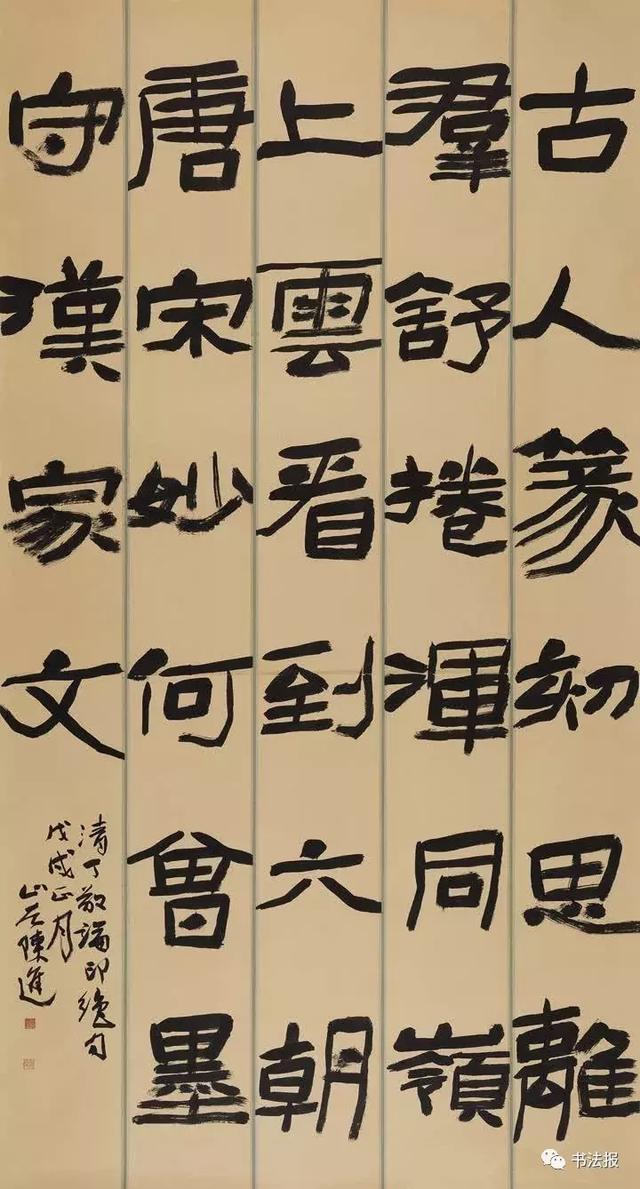 古人篆刻思離
羣舒捲渾同嶺
上雲看到六朝
唐宋妙何曾墨
守漢家文
清丁敬論印絕句
戊戌正月
陳進
书法报